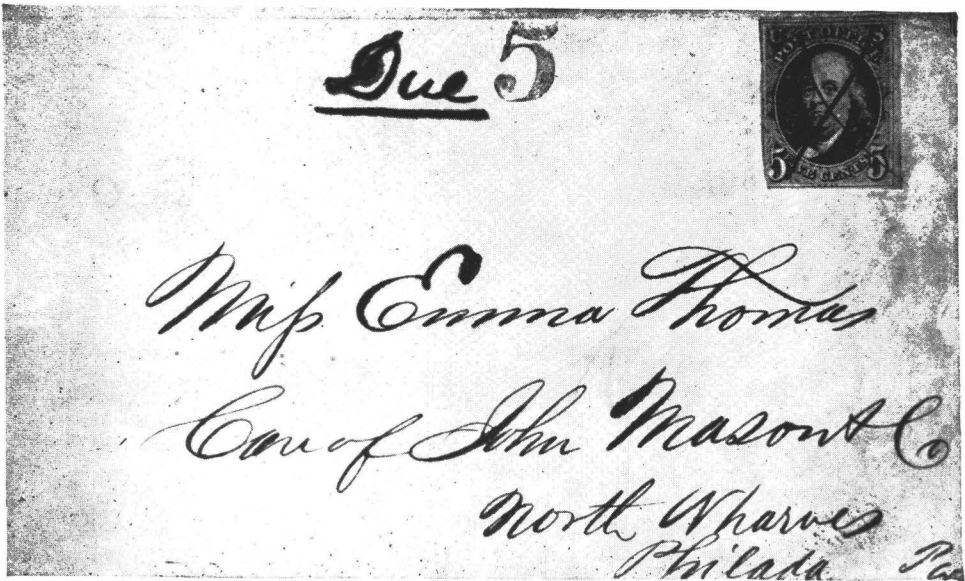 Due 5
POST OFFICE
5 FIVE CENTS 5
Miſs Emma Thomas
Care of John Mason & Co
North Wharves
Philada Pa